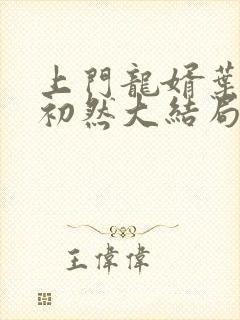 上門龍婿葉
初然大結局
王偉偉